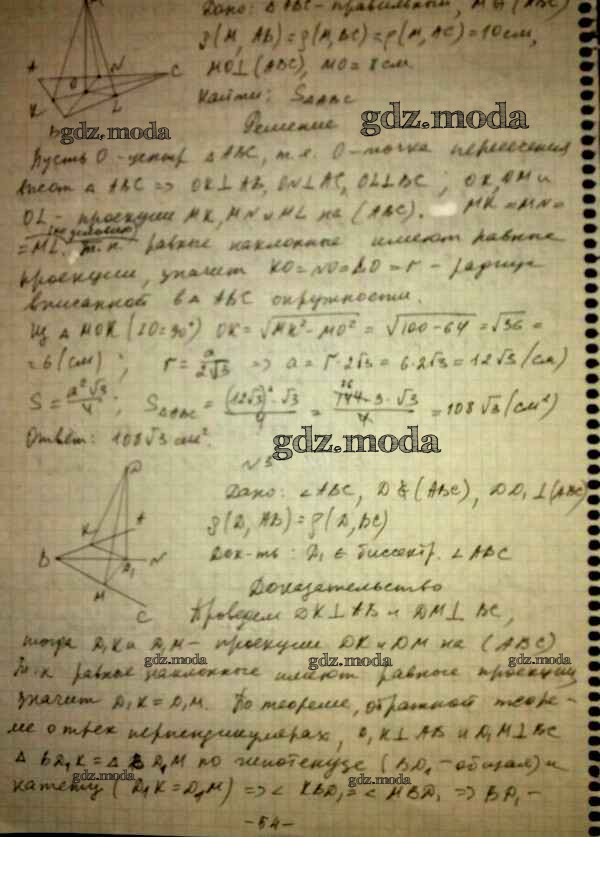 Дано: △ ABC - правильный, M ∉ (ABC)
ρ(M, AB) = ρ(M, BC) = ρ(M, AC) = 10 см,
MO ⊥ (ABC), MO = 8 см
Найти: S△ABC
Решение
gdz.moda
gdz.moda
Пусть O - центр △ ABC, т.е. O - точка пересечения
высот △ ABC => OK ⊥ AB, ON ⊥ AC, OL ⊥ BC ; OK, OM и
OL - проекции MK, MN и ML на (ABC). MK = MN =
= ML (по условию) т.к. равные наклонные имеют равные
проекции, значит KO = NO = LO = r - радиус
вписанной в △ ABC окружности.
Из △ MOK (∠O = 90°) OK = √MK² - MO² = √100 - 64 = √36 =
= 6 (см) ; r = a/2√3 => a = r · 2√3 = 6 · 2√3 = 12√3 (см)
S = a²√3/4 ; S△ABC = (12√3)² · √3/4 = 144 · 3 · √3/4 = 108√3 (см²)
Ответ: 108√3 см².
gdz.moda
N 5
Дано: ∠ABC, D ∉ (ABC), DD₁ ⊥ (ABC)
ρ(D, AB) = ρ(D, BC)
Док-ть: D₁ ∈ биссектр. ∠ABC
Доказательство
Проведем DK ⊥ AB и DM ⊥ BC,
тогда D₁K и D₁M - проекции DK и DM на (ABC)
gdz.moda
gdz.moda
gdz.moda
Т.к равные наклонные имеют равные проекции,
значит D₁K = D₁M. По теореме, обратной теоре-
ме о трех перпендикулярах, D₁K ⊥ AB и D₁M ⊥ BC
△ BD₁K = △ BD₁M по гипотенузе (BD₁ - общая) и
gdz.moda
gdz.moda
gdz.moda
катету (D₁K = D₁M) => ∠ KBD₁ = ∠ MBD₁ => BD₁ -
- 54 -